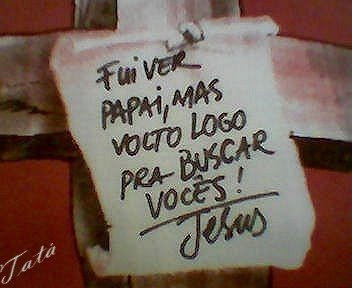 FUI VER
PAPAI, MAS
VOLTO LOGO
PRA BUSCAR
VOCÊS!
Jesus
Tatá